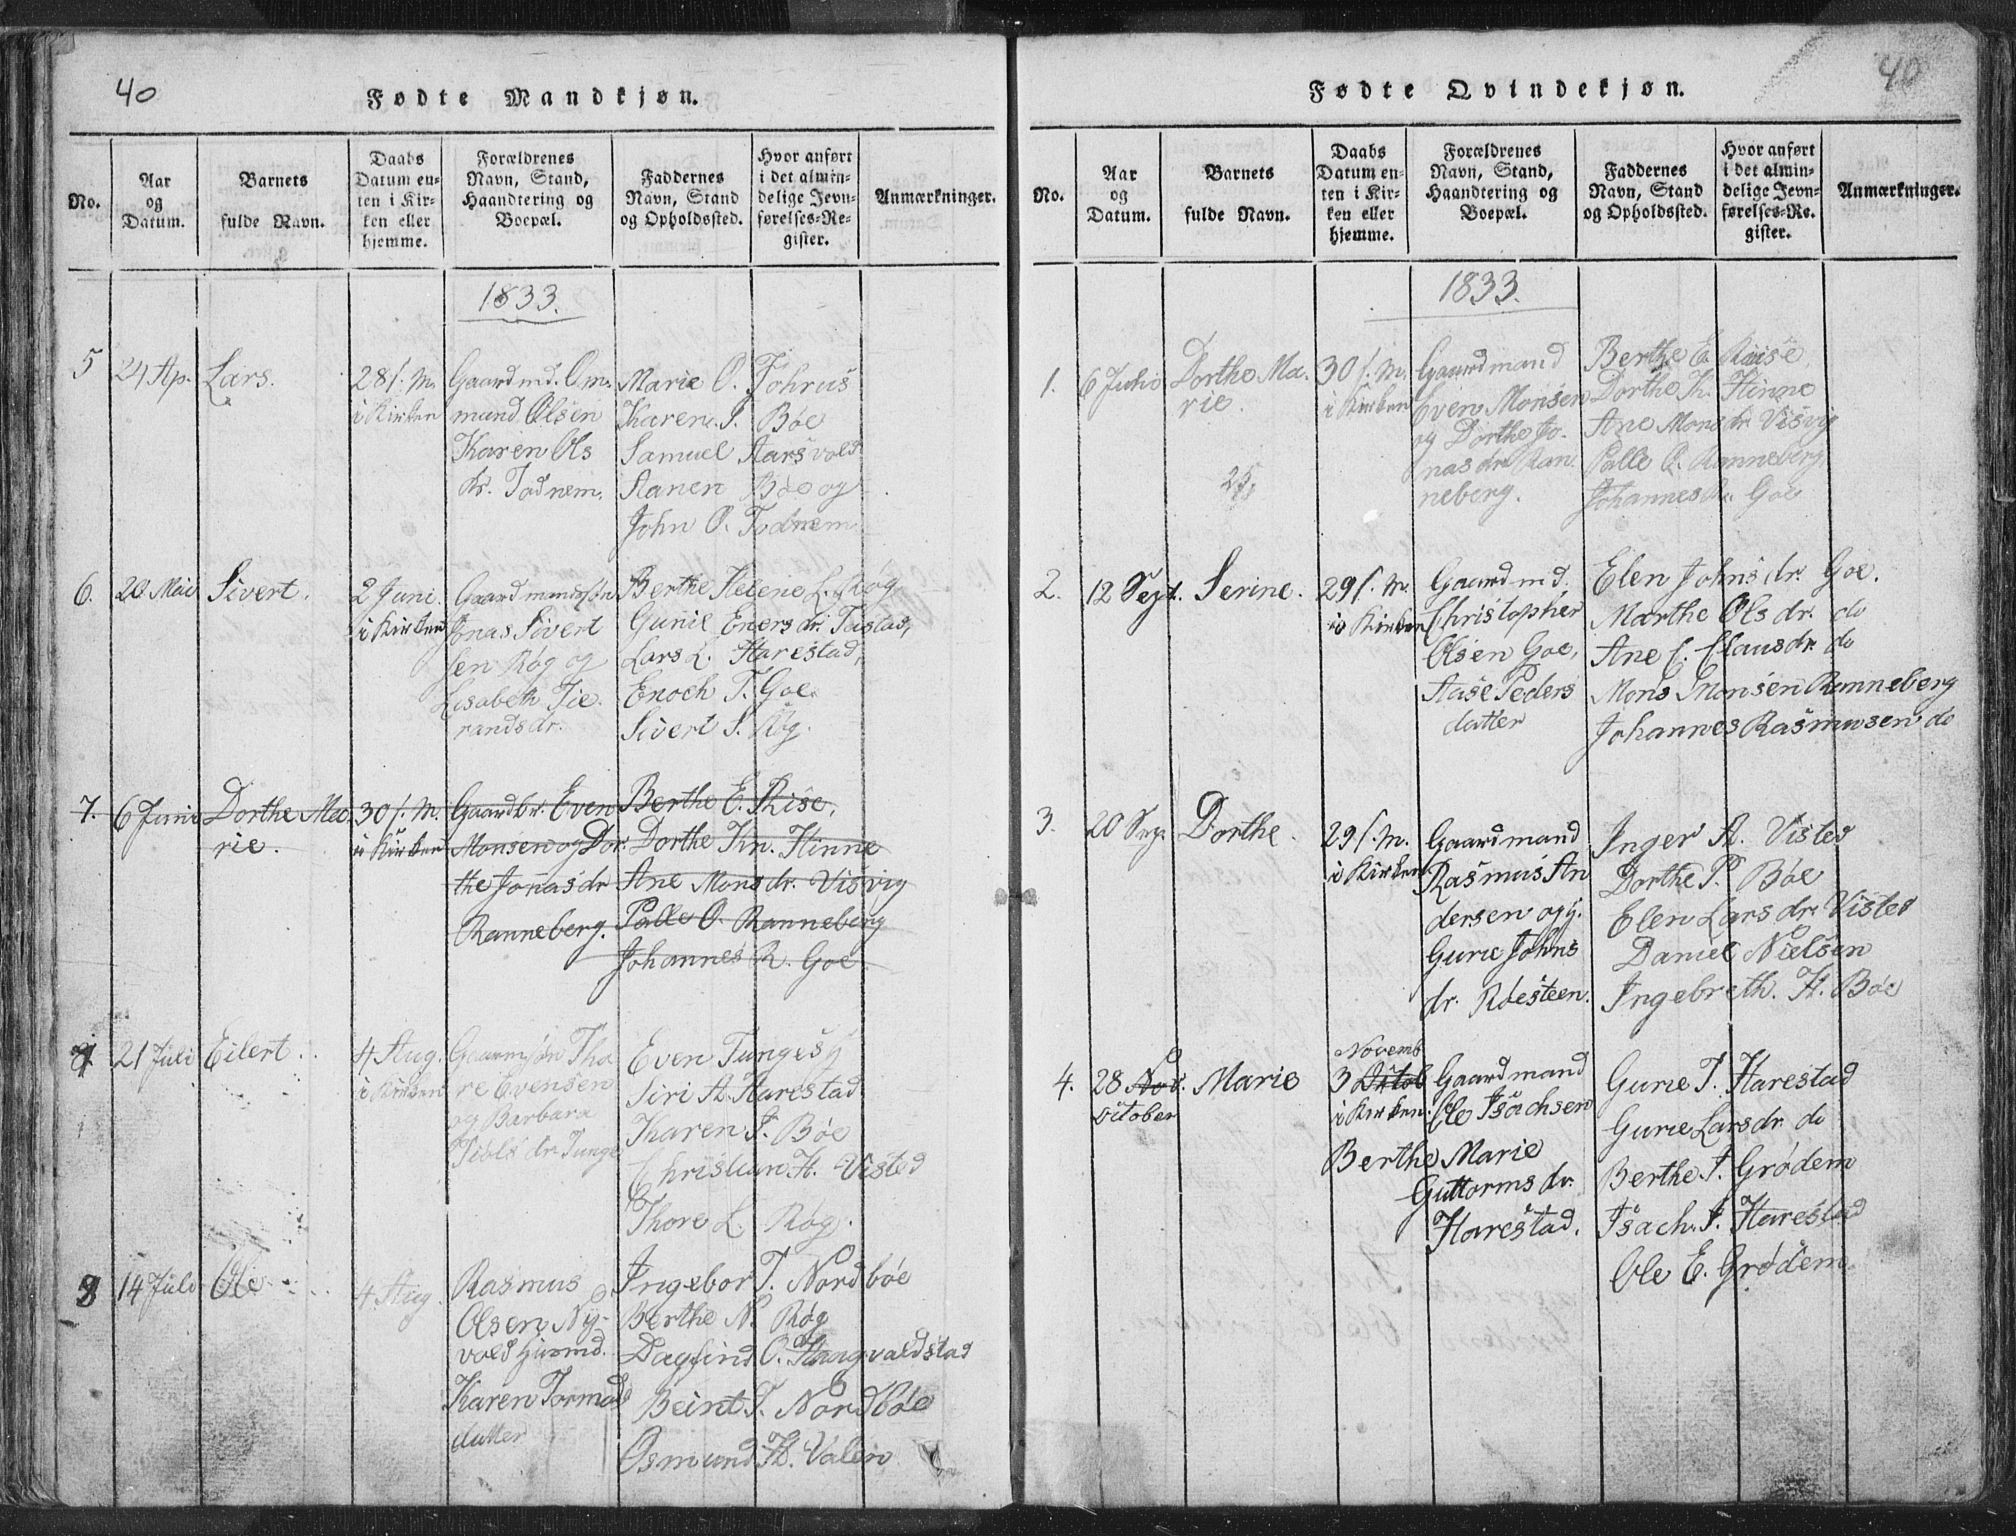 40
Fødte Mandkjøn.
No.
Aar
og
Datum.
Barnets
fulde Navn.
Daabs
Datum en-
ten i Kir-
ken eller
hjemme.
Forældrenes
Navn, Stand,
Haandtering og
Boepæl.
Faddernes
Navn, Stand
og Opholdssted.
Hvor anført
i det almin-
delige Jevn-
førelses-Re-
gister.
Anmærkninger.
1833.
5
24 Ap.
Lars.
28 s. M.
i Kirken
Gaardmd. Om-
mund Olsen
Karen Ols
dr. Todnem.
Marie O.
Karen J. Bøe
Samuel Aarsvold
Aanen Bøe og
John O. Todnem
6.
20 Mai
Sivert.
2 Juni.
i Kirken
Gaardmands
Jonas Sivert
sen Røg og
Lisabeth Tie-
randsdr.
Berthe Helene L. Røg
Gunil Enersdr. Tastad,
Lars L. Harestad,
Enoch T. Goe.
Sivert S. Røg.
7.
6 Juni
Dorthe Ma-
rie.
30 s. M.
i Kirken
Gaardbr. Even
Monsen og Dor-
the Jonasdr
Ranneberg.
Berthe E. Rise,
Dorthe Kn. Hinne
Ane Monsdr. Visvig
Palle O. Ranneberg
Johannes R. Goe.
8
21 Juli
Eilert.
4 Aug.
i Kirken
Tho
re Evensen
og Barbara
dr. Tunge
Even Tunge
Siri A. Harestad
Karen J. Bøe
Christian H. Visted
Thore L. Røg.
8
14 Juli
Ole
4 Aug.
Rasmus
Olsen Ny-
vold Husmd.
Karen Tormods
datter
Ingebor T. Nordbøe
Berthe N. Røg
Dagfind O. Haugvaldstad
Beint T. Nordbøe
Osmund Th. Valen
40
Fødte Qvindekjøn.
No.
Aar
og
Datum.
Barnets
fulde Navn.
Daabs
Datum en-
ten i Kir-
ken eller
hjemme.
Forældrenes
Navn, Stand,
Haandtering og
Boepæl.
Faddernes
Navn, Stand
og Opholdssted.
Hvor anført
i det almin-
delige Jevn-
førelses-Re-
gister.
Anmærkninger.
1833.
1.
6 Juni
Dorthe Ma-
rie.
30 s. M.
i Kirken
Gaardmand
Even Monsen
og Dorthe Jo-
nasdr. Ran-
neberg.
Berthe E. Riise
Dorthe K. Hinne
Ane Monsdr. Visvig
Palle O. Ranneberg
Johannes R. Goe
2.
12 Sept.
Serine.
29 s. M.
i Kirken
Gaardmd.
Christopher
Olsen Goe,
Aase Peders
datter
Elen Johnsdr. Goe.
Marthe Olsdr. do
Ane C. Clausdr. do
Mons Monsen Ranneberg
Johannes Rasmusen do
3.
20 Sep.
Dorthe.
29 s. M.
i Kirken
Gaardmand
Rasmus An
dersen og
Gurie Johns
dr. Røesteen.
Inger A. Visted
Dorthe P. Bøe
Elen Larsdr. Visted
Daniel Nielsen
Ingebreth. H. Bøe
4.
28 Nov.
October
Marie
Novemb
3 Octob
i Kirken.
Gaardmand
Ole Isachsen
Berthe Marie
Guttormsdr.
Harestad.
Gurie T. Harestad
Gurie Larsdr. do
Berthe J. Grødem
Isach. J. Harestad
Ole E. Grødem.